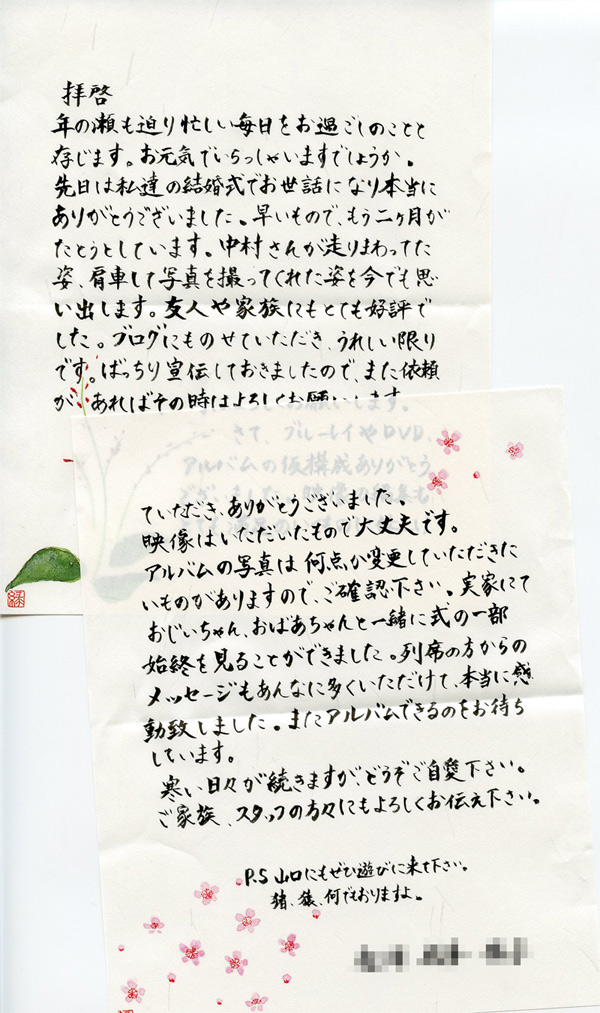 拝啓
年の瀬も迫り忙しい毎日をお過ごしのことと
存じます。お元気でいらっしゃいますでしょうか。
先日は私達の結婚式でお世話になり本当に
ありがとうございました。早いもので、もう二ヶ月が
たとうとしています。中村さんが走りまわってた
姿、肩車して写真を撮ってくれた姿を今でも思
い出します。友人や家族にもとても好評で
した。ブログにものせていただき、うれしい限り
です。ばっちり宣伝しておきましたので、また依頼
が、あればその時はよろしくお願いします。
さて、ブルーレイやDVD、
アルバムの仮構成ありがとう
ございました。映像の編集も
ていただき、ありがとうございました。
映像はいただいたもので大丈夫です。
アルバムの写真は何点か変更していただきた
いものがありますので、ご確認下さい。実家にて
おじいちゃん、おばあちゃんと一緒に式の一部
始終を見ることができました。列席の方からの
メッセージもあんなに多くいただけて、本当に感
動致しました。またアルバムできるのをお待ち
しています。
寒い日々が続きますが、どうぞご自愛下さい。
ご家族、スタッフの方々にもよろしくお伝え下さい。
P.S 山口にもぜひ遊びに来て下さい。
猪、猿、何でもおりますよ。
縁